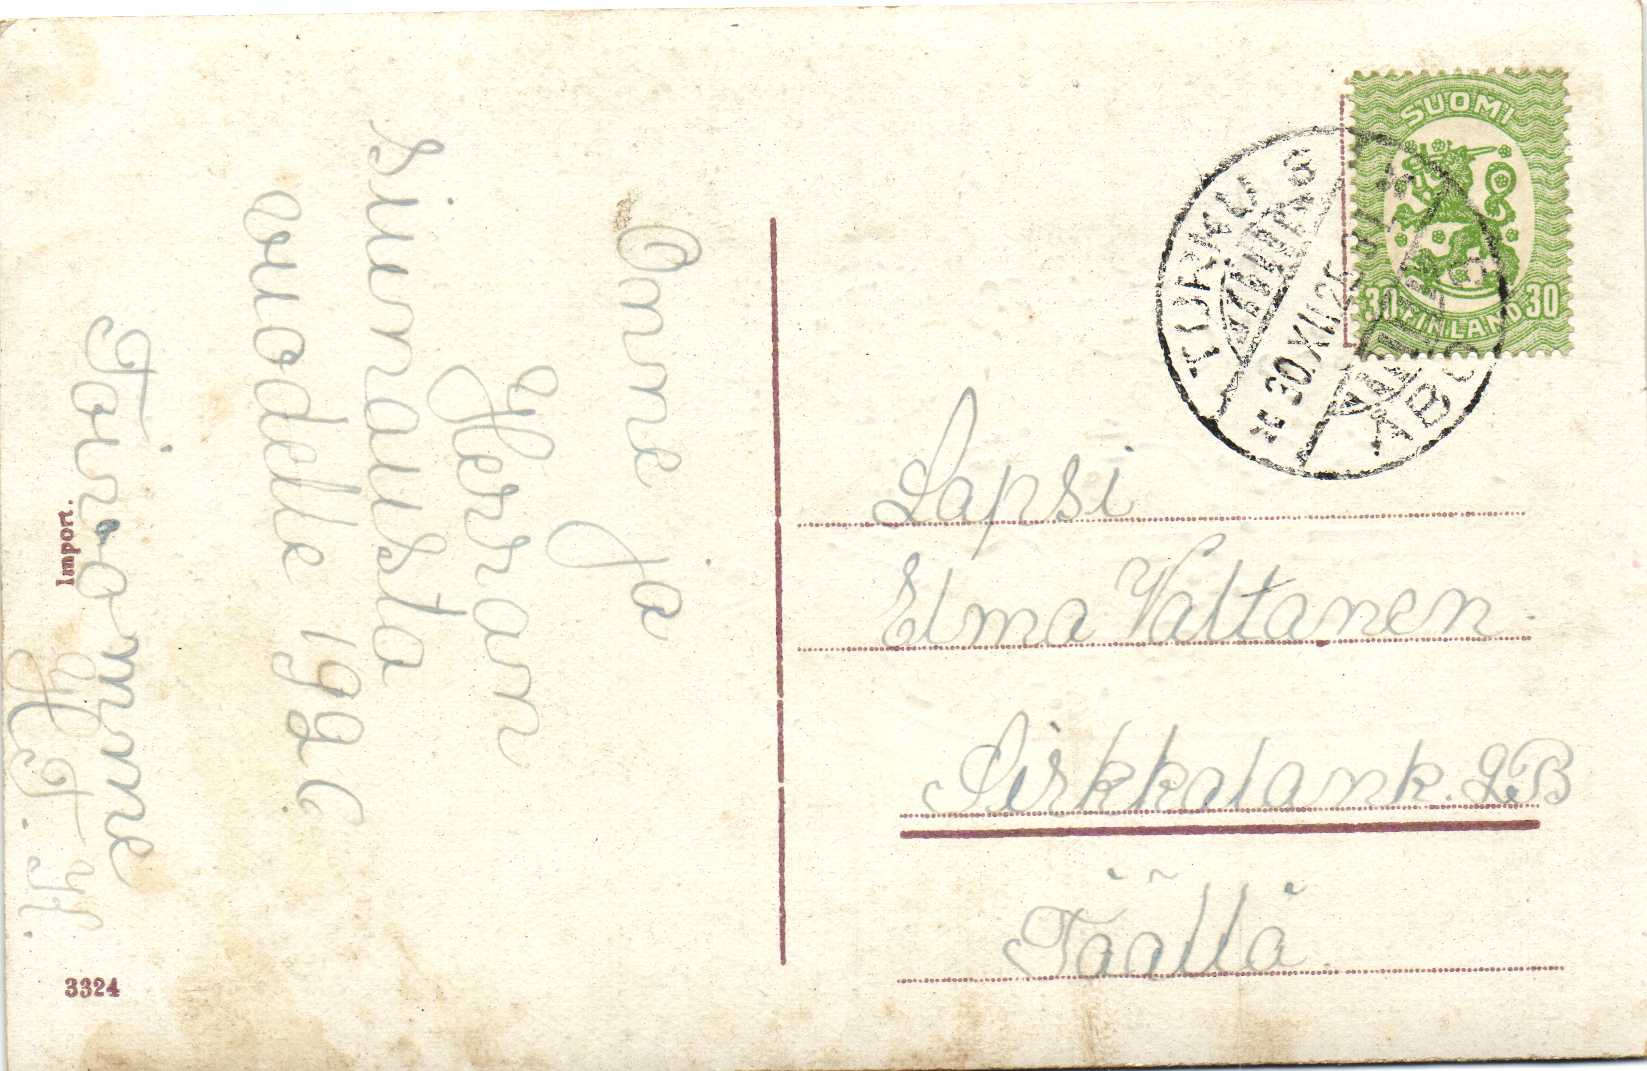 Onne ja
Herran
siunausta
vuodelle 1926
Toivomme
H.T. y.
Import.
3324
SUOMI
30 FINLAND 30
TURKU
30.XII.25
ÅBO
Lapsi
Elma Valtanen.
Sirkkalank. 2B
Täällä.